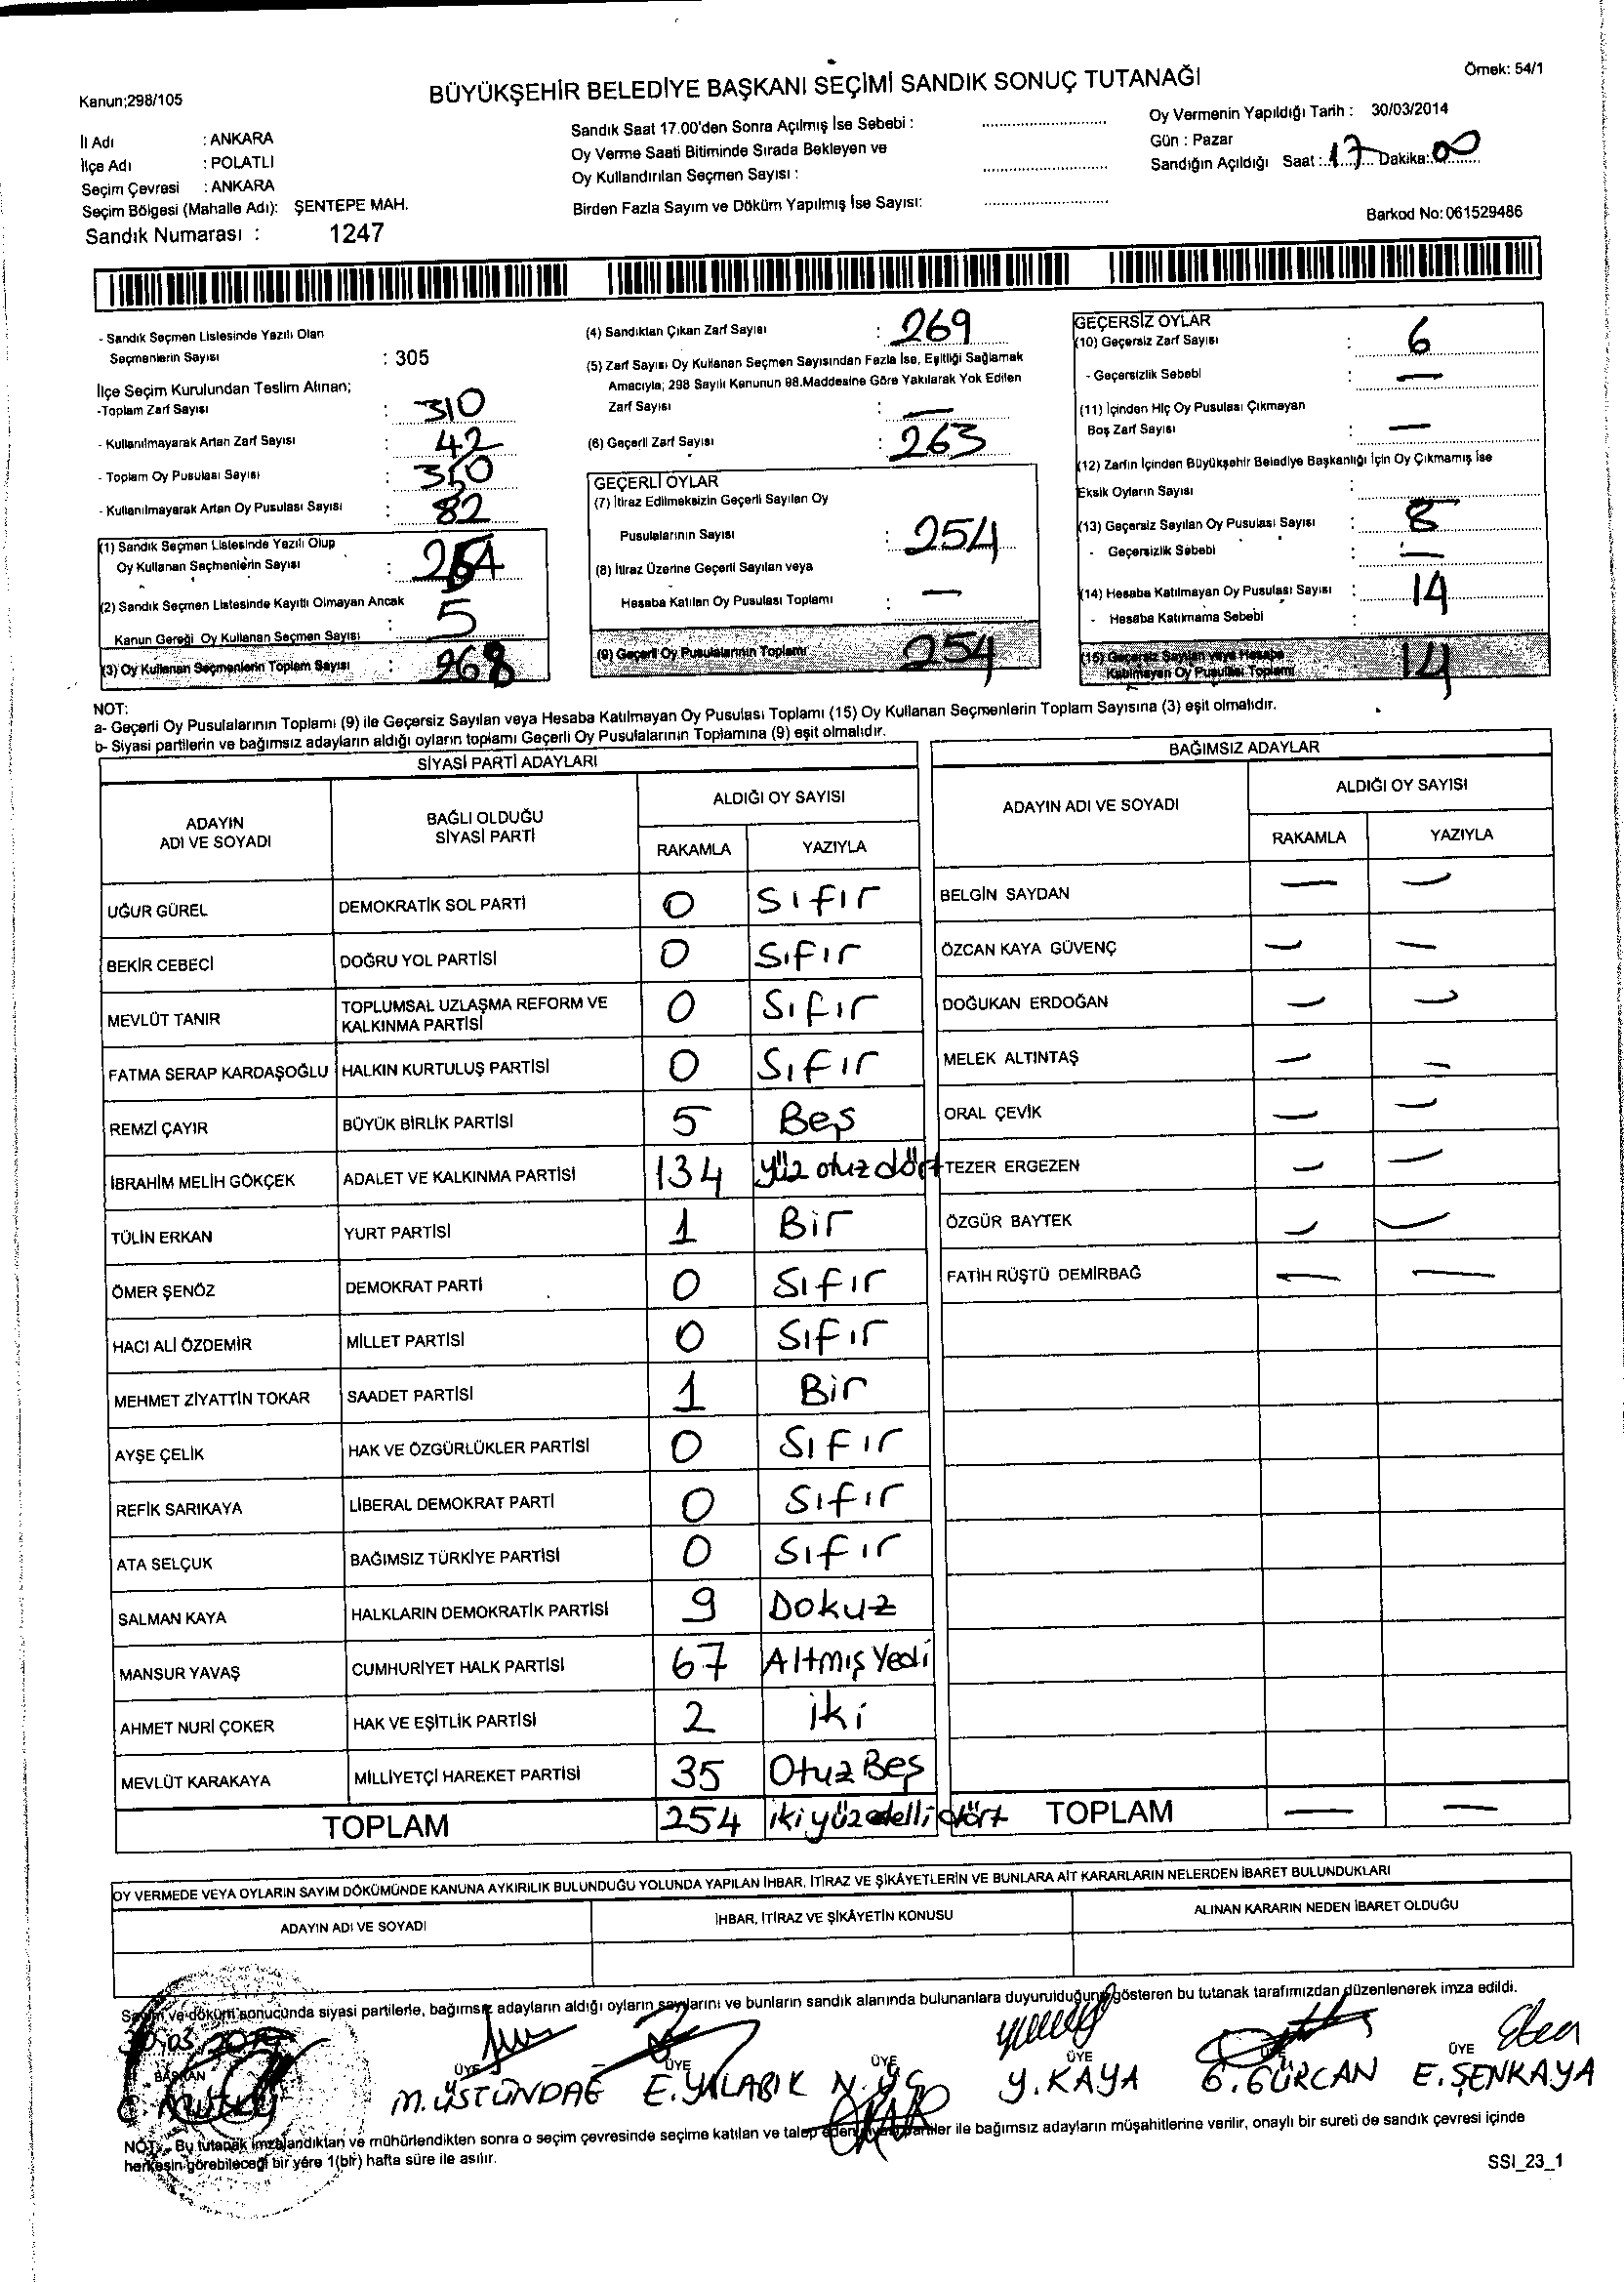 Örnek: 54/1
BÜYÜKŞEHİR BELEDİYE BAŞKANI SEÇİMİ SANDIK SONUÇ TUTANAĞI
Kanun;298/105
İl Adı : ANKARA
İlçe Adı : POLATLI
Seçim Çevresi : ANKARA
Seçim Bölgesi (Mahalle Adı): ŞENTEPE MAH.
Sandık Numarası : 1247
Sandık Saat 17.00'den Sonra Açılmış İse Sebebi :
Oy Verme Saati Bitiminde Sırada Bekleyen ve
Oy Kullandırılan Seçmen Sayısı :
Birden Fazla Sayım ve Döküm Yapılmış İse Sayısı:
Oy Vermenin Yapıldığı Tarih : 30/03/2014
Gün : Pazar
Sandığın Açıldığı Saat : 17 Dakika: 00
Barkod No: 061529486
- Sandık Seçmen Listesinde Yazılı Olan
Seçmenlerin Sayısı : 305
İlçe Seçim Kurulundan Teslim Alınan;
-Toplam Zarf Sayısı : 310
- Kullanılmayarak Artan Zarf Sayısı : 42
- Toplam Oy Pusulası Sayısı : 350
- Kullanılmayarak Artan Oy Pusulası Sayısı : 82
(1) Sandık Seçmen Listesinde Yazılı Olup
Oy Kullanan Seçmenlerin Sayısı :
(2) Sandık Seçmen Listesinde Kayıtlı Olmayan Ancak
Kanun Gereği Oy Kullanan Seçmen Sayısı : 5
(3) Oy Kullanan Seçmenlerin Toplam Sayısı : 268
(4) Sandıktan Çıkan Zarf Sayısı : 269
(5) Zarf Sayısı Oy Kullanan Seçmen Sayısından Fazla İse, Eşitliği Sağlamak
Amacıyla; 298 Sayılı Kanunun 98.Maddesine Göre Yakılarak Yok Edilen
Zarf Sayısı : —
(6) Geçerli Zarf Sayısı : 263
GEÇERLİ OYLAR
(7) İtiraz Edilmeksizin Geçerli Sayılan Oy
Pusulalarının Sayısı : 254
(8) İtiraz Üzerine Geçerli Sayılan veya
Hesaba Katılan Oy Pusulası Toplamı : —
(9) Geçerli Oy Pusulalarının Toplamı 254
GEÇERSİZ OYLAR
(10) Geçersiz Zarf Sayısı : 6
- Geçersizlik Sebebi : —
(11) İçinden Hiç Oy Pusulası Çıkmayan
Boş Zarf Sayısı : —
(12) Zarfın İçinden Büyükşehir Belediye Başkanlığı İçin Oy Çıkmamış İse
Eksik Oyların Sayısı :
(13) Geçersiz Sayılan Oy Pusulası Sayısı : 8
- Geçersizlik Sebebi : —
(14) Hesaba Katılmayan Oy Pusulası Sayısı : 14
- Hesaba Katılmama Sebebi :
(15) Geçersiz Sayılan veya Hesaba
Katılmayan Oy Pusulası Toplamı 14
NOT:
a- Geçerli Oy Pusulalarının Toplamı (9) ile Geçersiz Sayılan veya Hesaba Katılmayan Oy Pusulası Toplamı (15) Oy Kullanan Seçmenlerin Toplam Sayısına (3) eşit olmalıdır.
b- Siyasi partilerin ve bağımsız adayların aldığı oyların toplamı Geçerli Oy Pusulalarının Toplamına (9) eşit olmalıdır.
SİYASİ PARTİ ADAYLARI
ADAYIN ADI VE SOYADI BAĞLI OLDUĞU SİYASİ PARTİ ALDIĞI OY SAYISI
RAKAMLA YAZIYLA
UĞUR GÜREL DEMOKRATİK SOL PARTİ 0 Sıfır
BEKİR CEBECİ DOĞRU YOL PARTİSİ 0 Sıfır
MEVLÜT TANIR TOPLUMSAL UZLAŞMA REFORM VE KALKINMA PARTİSİ 0 Sıfır
FATMA SERAP KARDAŞOĞLU HALKIN KURTULUŞ PARTİSİ 0 Sıfır
REMZİ ÇAYIR BÜYÜK BİRLİK PARTİSİ 5 Beş
İBRAHİM MELİH GÖKÇEK ADALET VE KALKINMA PARTİSİ 134 yüz otuz dört
TÜLİN ERKAN YURT PARTİSİ 1 Bir
ÖMER ŞENÖZ DEMOKRAT PARTİ 0 Sıfır
HACI ALİ ÖZDEMİR MİLLET PARTİSİ 0 Sıfır
MEHMET ZİYATTİN TOKAR SAADET PARTİSİ 1 Bir
AYŞE ÇELİK HAK VE ÖZGÜRLÜKLER PARTİSİ 0 Sıfır
REFİK SARIKAYA LİBERAL DEMOKRAT PARTİ 0 Sıfır
ATA SELÇUK BAĞIMSIZ TÜRKİYE PARTİSİ 0 Sıfır
SALMAN KAYA HALKLARIN DEMOKRATİK PARTİSİ 9 Dokuz
MANSUR YAVAŞ CUMHURİYET HALK PARTİSİ 67 Altmış Yedi
AHMET NURİ ÇOKER HAK VE EŞİTLİK PARTİSİ 2 iki
MEVLÜT KARAKAYA MİLLİYETÇİ HAREKET PARTİSİ 35 Otuz Beş
TOPLAM 254 iki yüz elli dört
BAĞIMSIZ ADAYLAR
ADAYIN ADI VE SOYADI ALDIĞI OY SAYISI
RAKAMLA YAZIYLA
BELGİN SAYDAN — —
ÖZCAN KAYA GÜVENÇ — —
DOĞUKAN ERDOĞAN — —
MELEK ALTINTAŞ — —
ORAL ÇEVİK — —
TEZER ERGEZEN — —
ÖZGÜR BAYTEK — —
FATİH RÜŞTÜ DEMİRBAĞ — —
TOPLAM — —
OY VERMEDE VEYA OYLARIN SAYIM DÖKÜMÜNDE KANUNA AYKIRILIK BULUNDUĞU YOLUNDA YAPILAN İHBAR, İTİRAZ VE ŞİKÂYETLERİN VE BUNLARA AİT KARARLARIN NELERDEN İBARET BULUNDUKLARI
ADAYIN ADI VE SOYADI İHBAR, İTİRAZ VE ŞİKÂYETİN KONUSU ALINAN KARARIN NEDEN İBARET OLDUĞU
Sayım ve döküm sonucunda siyasi partilerle, bağımsız adayların aldığı oyların sayılarını ve bunların sandık alanında bulunanlara duyurulduğunu gösteren bu tutanak tarafımızdan düzenlenerek imza edildi.
30.03.2014
BAŞKAN ÜYE ÜYE ÜYE ÜYE ÜYE
M. ÜSTÜNDAĞ E. YALABIK N. ÜÇ Y. KAYA G. GÜRCAN E. ŞENKAYA
NOT: Bu tutanak imzalandıktan ve mühürlendikten sonra o seçim çevresinde seçime katılan ve talep eden siyasi partiler ile bağımsız adayların müşahitlerine verilir, onaylı bir sureti de sandık çevresi içinde
herkesin görebileceği bir yere 1(bir) hafta süre ile asılır.
SSI_23_1